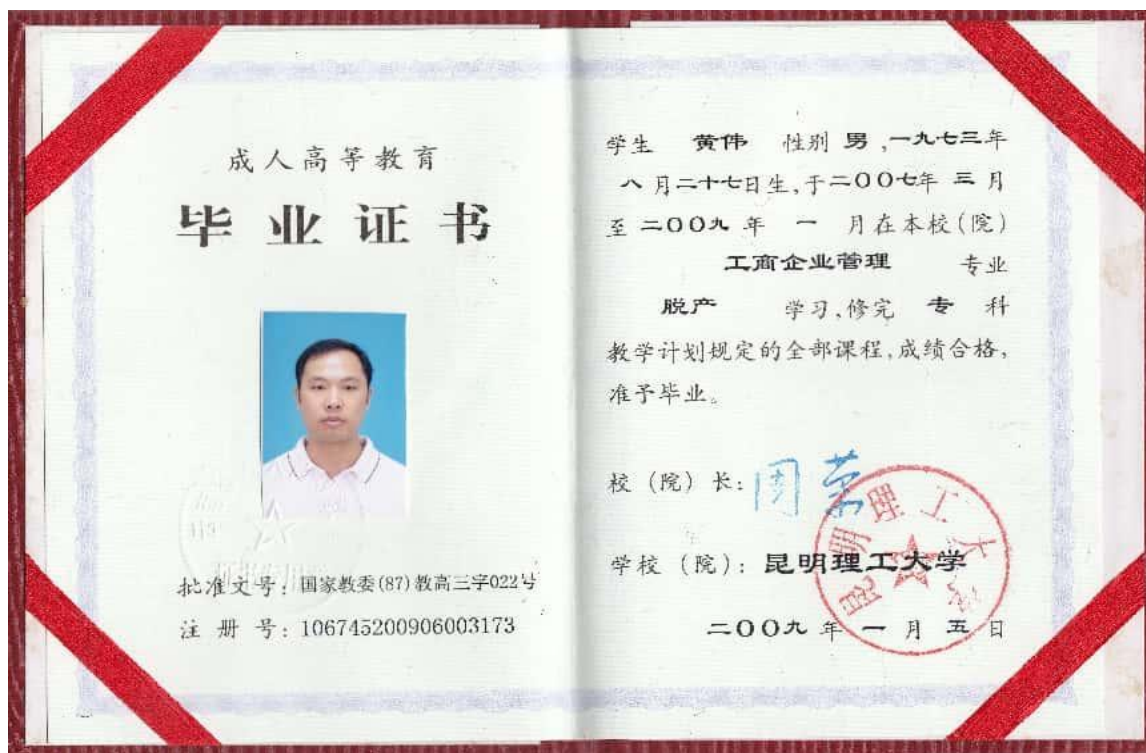 成人高等教育
毕业证书
批准文号：国家教委(87)教高三字022号
注册号：106745200906003173
学生 黄伟 性别 男，一九七三年
八月二十七日生，于二〇〇七年 三月
至二〇〇九年 一 月在本校(院)
工商企业管理 专业
脱产 学习，修完 专 科
教学计划规定的全部课程，成绩合格，
准予毕业。
校（院）长：周荣
学校（院）：昆明理工大学
昆明理工大学
二〇〇九年 一 月 五 日